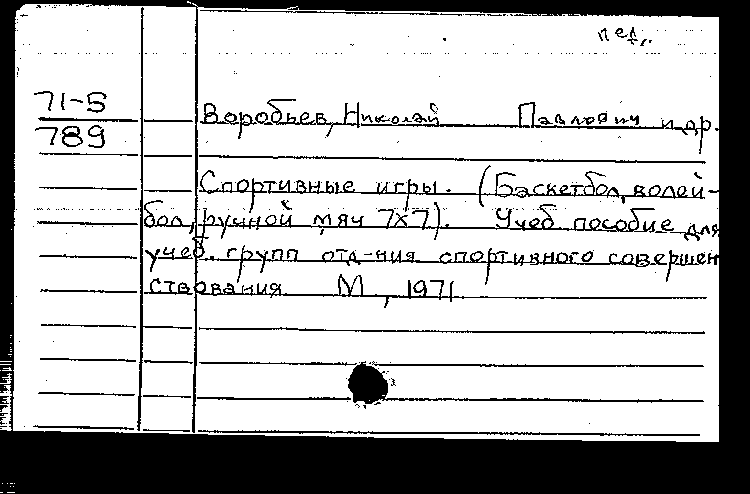 пед.
71-5
789
Воробьев, Николай Павлович и др.
Спортивные игры. (Баскетбол, волей-
бол, ручной мяч 7х7). Учеб. пособие для
учеб. групп отд-ния спортивного совершен
ствования М, 1971.